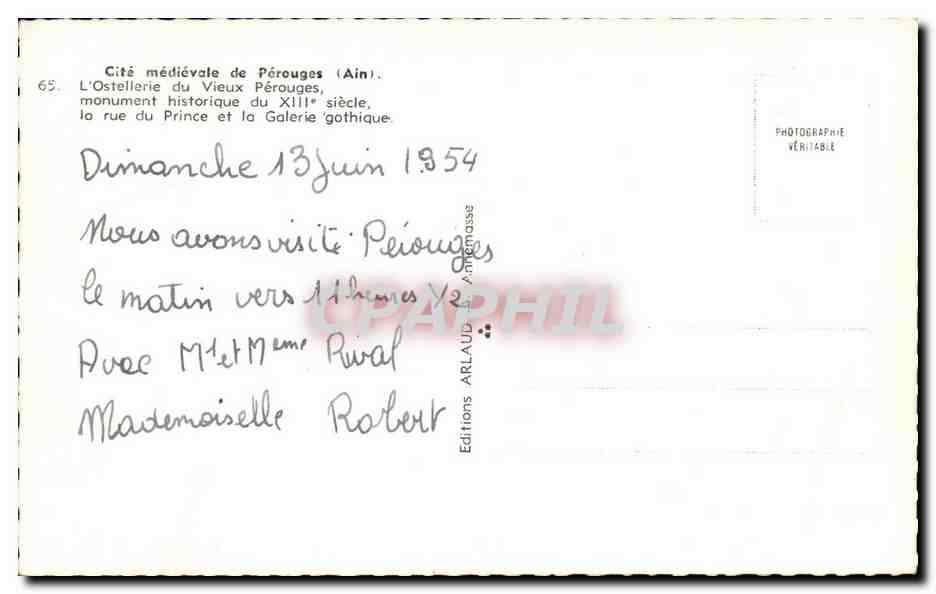 Cité médiévale de Pérouges (Ain).
65. L'Ostellerie du Vieux Pérouges,
monument historique du XIIIe siècle,
la rue du Prince et la Galerie gothique.
Dimanche 13 Juin 1954
Nous avons visité Pérouges
le matin vers 11 heures 1/2
Avec Mr et Meme Rival
Mademoiselle Robert
Editions ARLAUD Annemasse
PHOTOGRAPHIE
VÉRITABLE
CPAPHIL